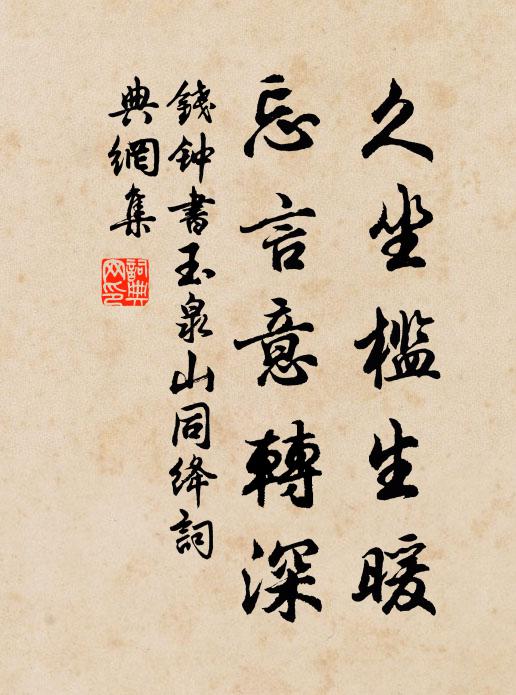 久坐檻生暖
忘言意轉深
錢钟書玉泉山同绛詞
典網集
詞典
网印